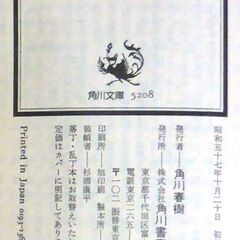 角川文庫 5208
昭和五十七年十月二十日 初
発行者――角川春樹
発行所――株式会社角川書
東京都千代田区富
電話東京二六五
〒一〇二 振替東京
印刷所――旭印刷 製本所
装幀者――杉浦康平
落丁・乱丁本はお取替えいた
定価はカバーに明記してあり
Printed in Japan 0193-136